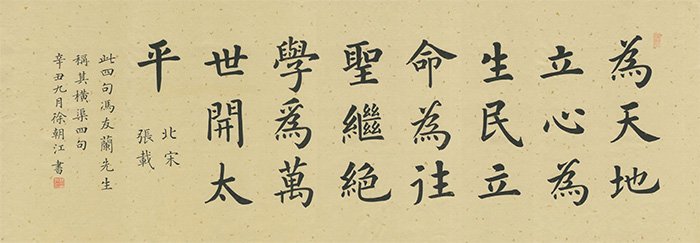 為天地
立心為
生民立
命為往
聖繼絕
學爲萬
世開太
平
北宋
張載
此四句馮友蘭先生
稱其橫渠四句
辛丑九月徐朝江書